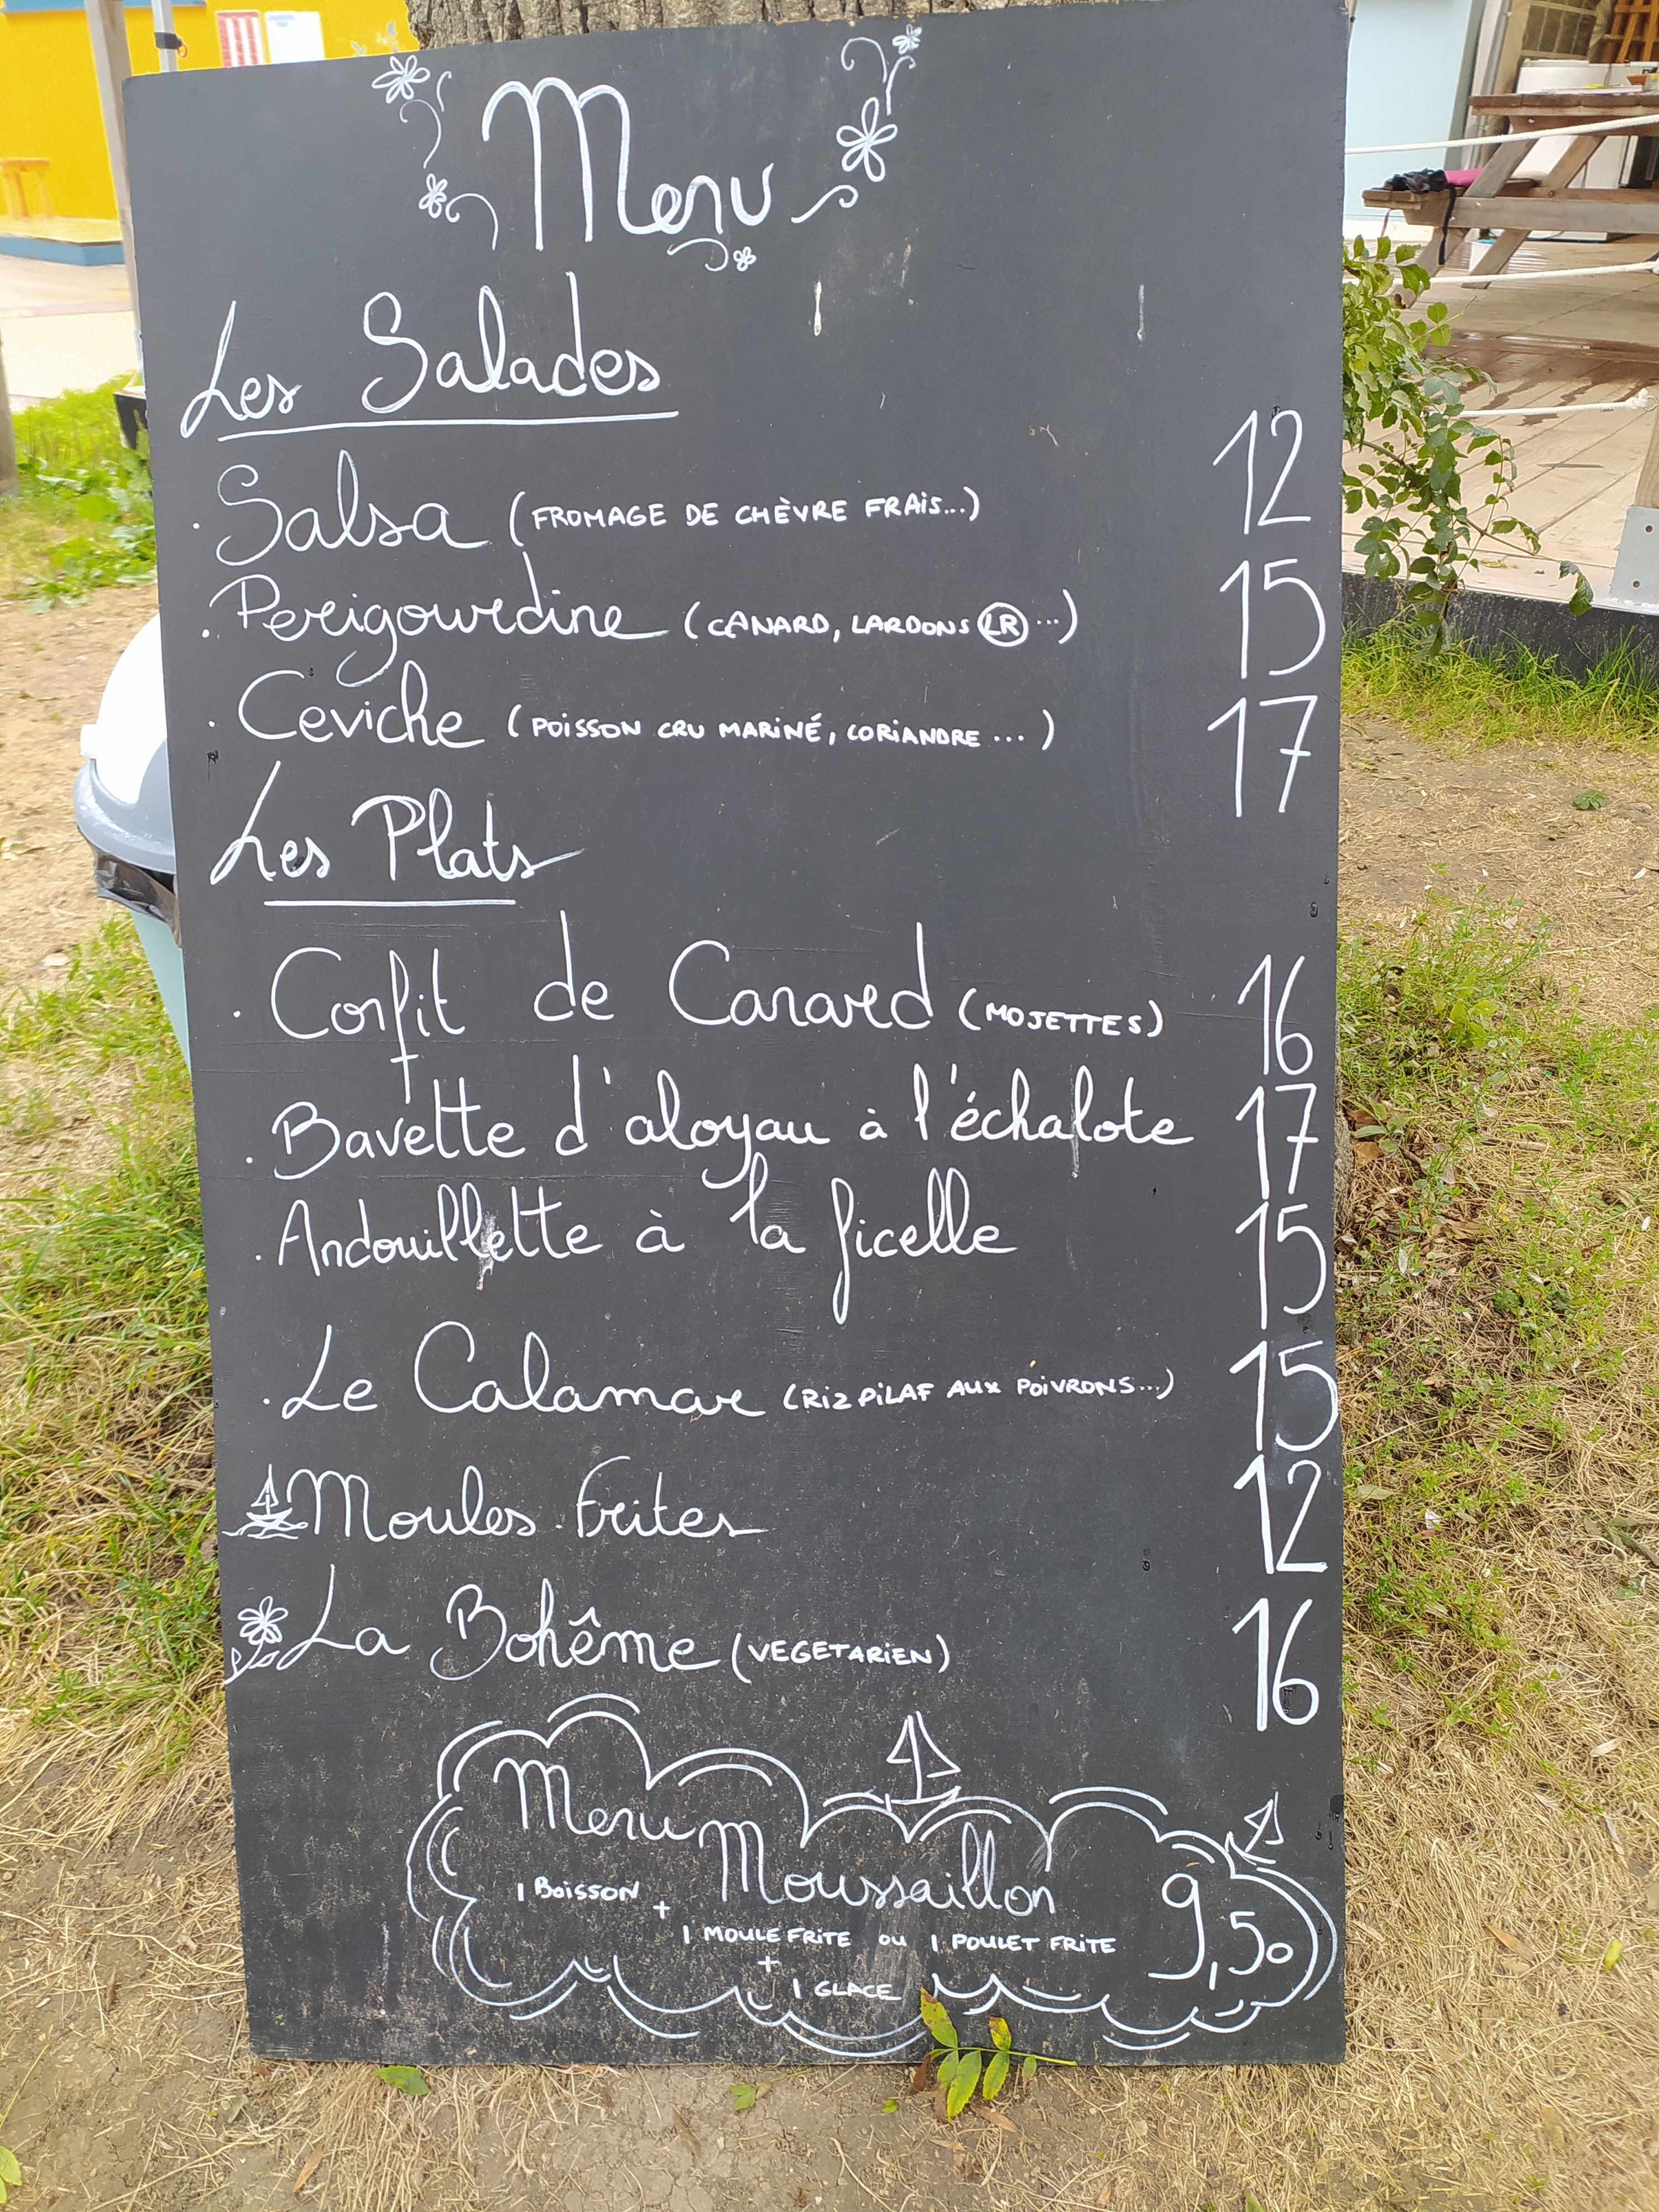 Menu
Les Salades
. Salsa (FROMAGE DE CHÈVRE FRAIS...) 12
. Perigourdine (CANARD, LARDONS LR ...) 15
. Ceviche (POISSON CRU MARINÉ, CORIANDRE ...) 17
Les Plats
. Confit de Canard (MOJETTES) 16
. Bavette d'aloyau à l'échalote 17
. Andouillette à la ficelle 15
. Le Calamar (RIZ PILAF AUX POIVRONS...) 15
Moules-Frites 12
La Bohême (VEGETARIEN) 16
Menu Moussaillon
1 BOISSON
+
1 MOULE FRITE ou 1 POULET FRITE 9,50
+
1 GLACE